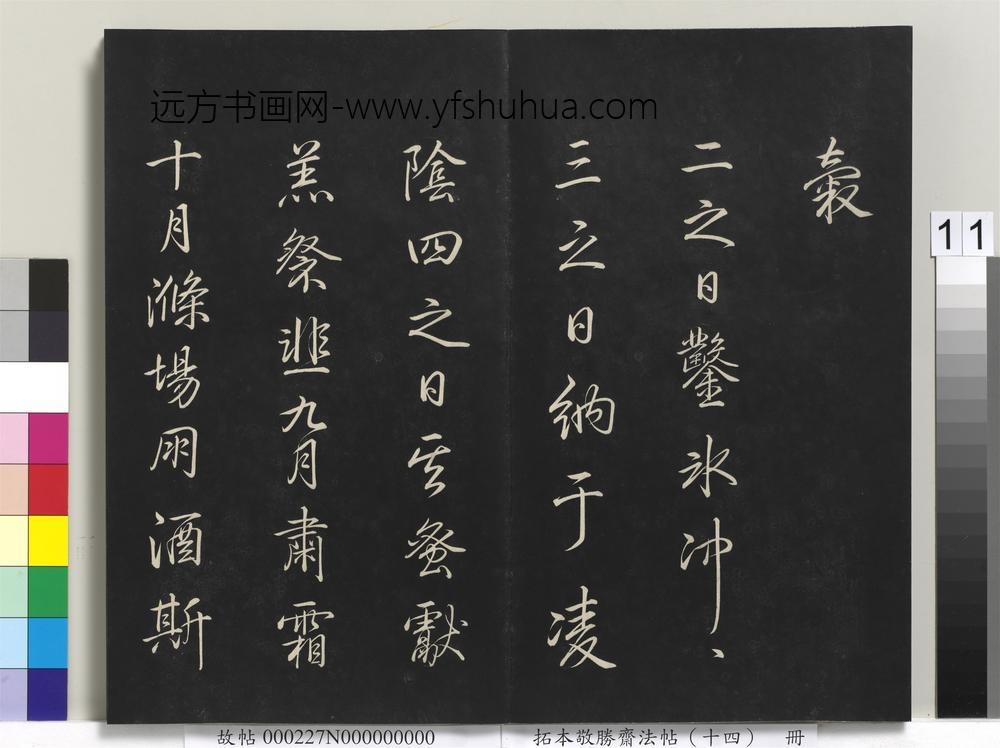 远方书画网-www.yfshuhua.com
穀
二之日鑿氷冲、
三之日納于凌
陰四之日其蚤獻
羔祭韭九月肅霜
十月滌場朋酒斯
11
故帖 000227N000000000
拓本敬勝齋法帖（十四） 冊